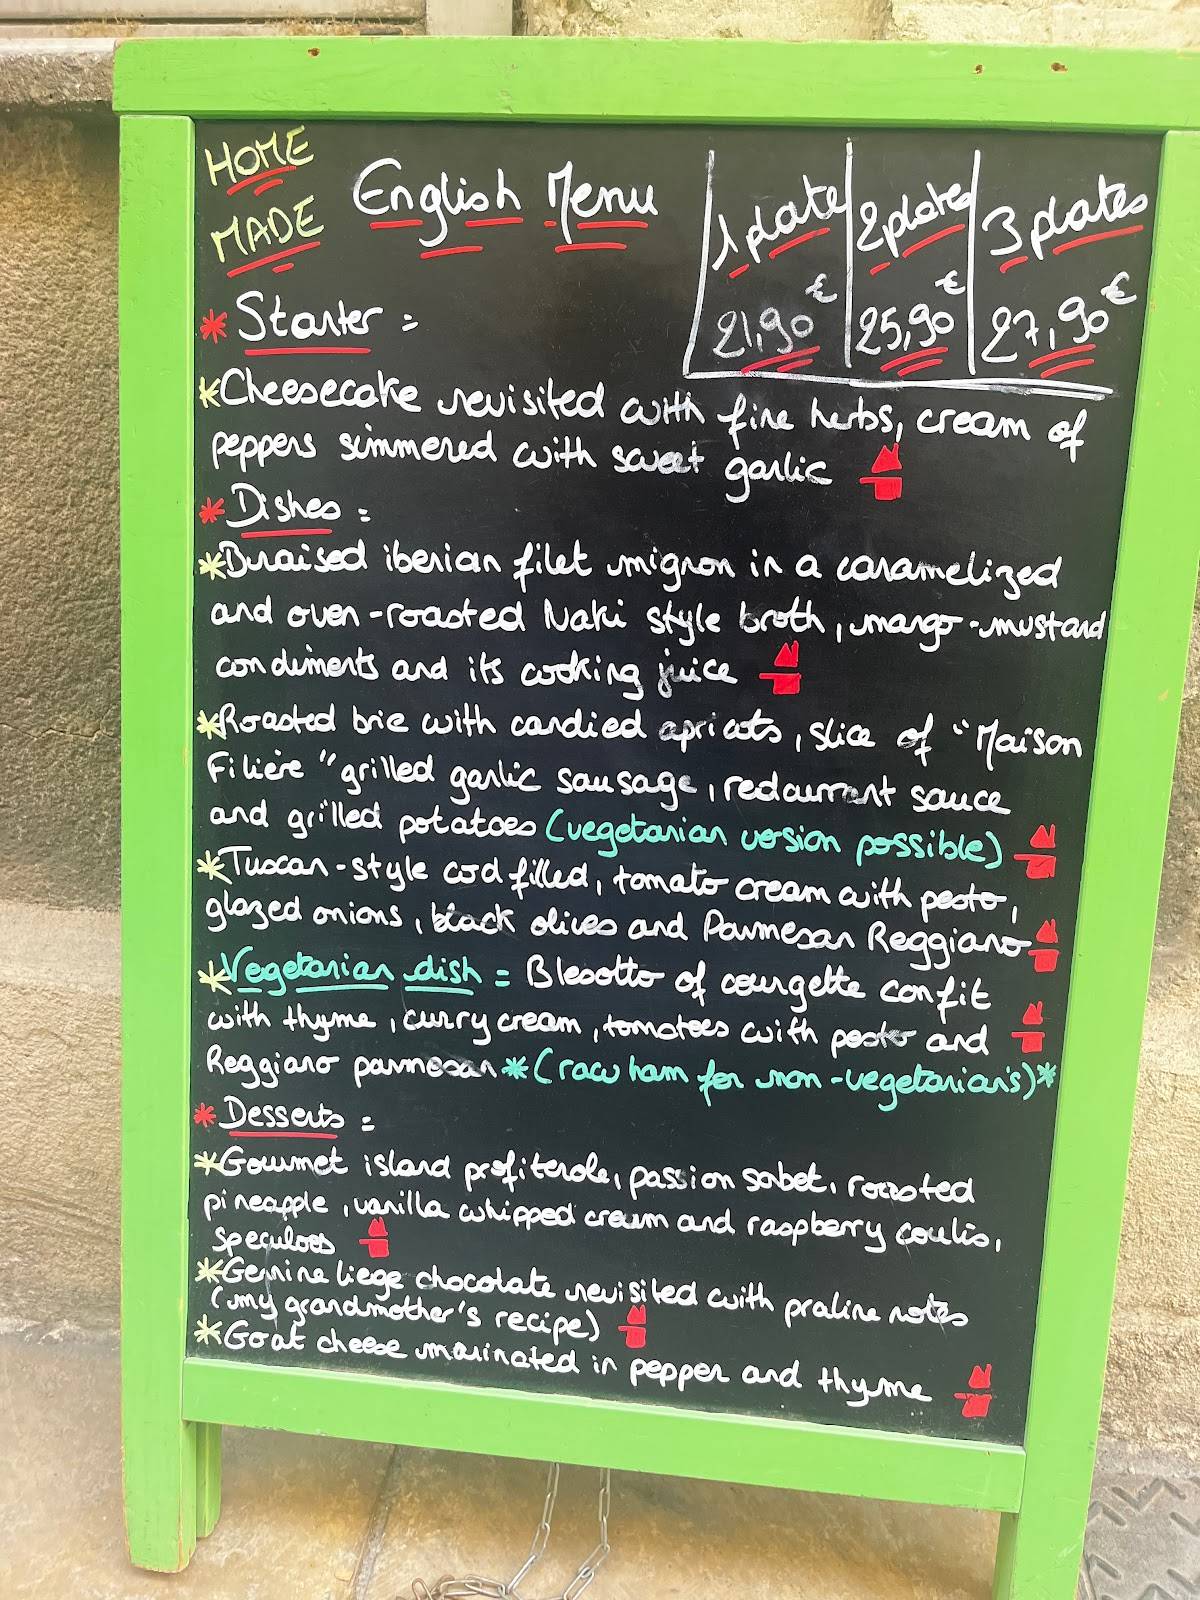 HOME
MADE
English Menu
1 plate 2 plates 3 plates
21,90€ 25,90€ 27,90€
* Starter =
*Cheesecake revisited with fine herbs, cream of
peppers simmered with sweet garlic
* Dishes =
*Braised iberian filet mignon in a caramelized
and oven-roasted Naki style broth, mango-mustard
condiments and its cooking juice
*Roasted brie with candied apricots, slice of "Maison
Filière" grilled garlic sausage, redcurrant sauce
and grilled potatoes (vegetarian version possible)
*Tuscan-style cod filled, tomato cream with pesto,
glazed onions, black olives and Parmesan Reggiano
*Vegetarian dish = Blesotto of courgette confit
with thyme, curry cream, tomatoes with pesto and
Reggiano parmesan *(raw ham for non-vegetarian's)*
* Desserts =
*Gourmet island profiterole, passion sobet, roasted
pineapple, vanilla whipped cream and raspberry coulis,
speculoos
*Genuine liege chocolate revisited with praline notes
(my grandmother's recipe)
*Goat cheese marinated in pepper and thyme